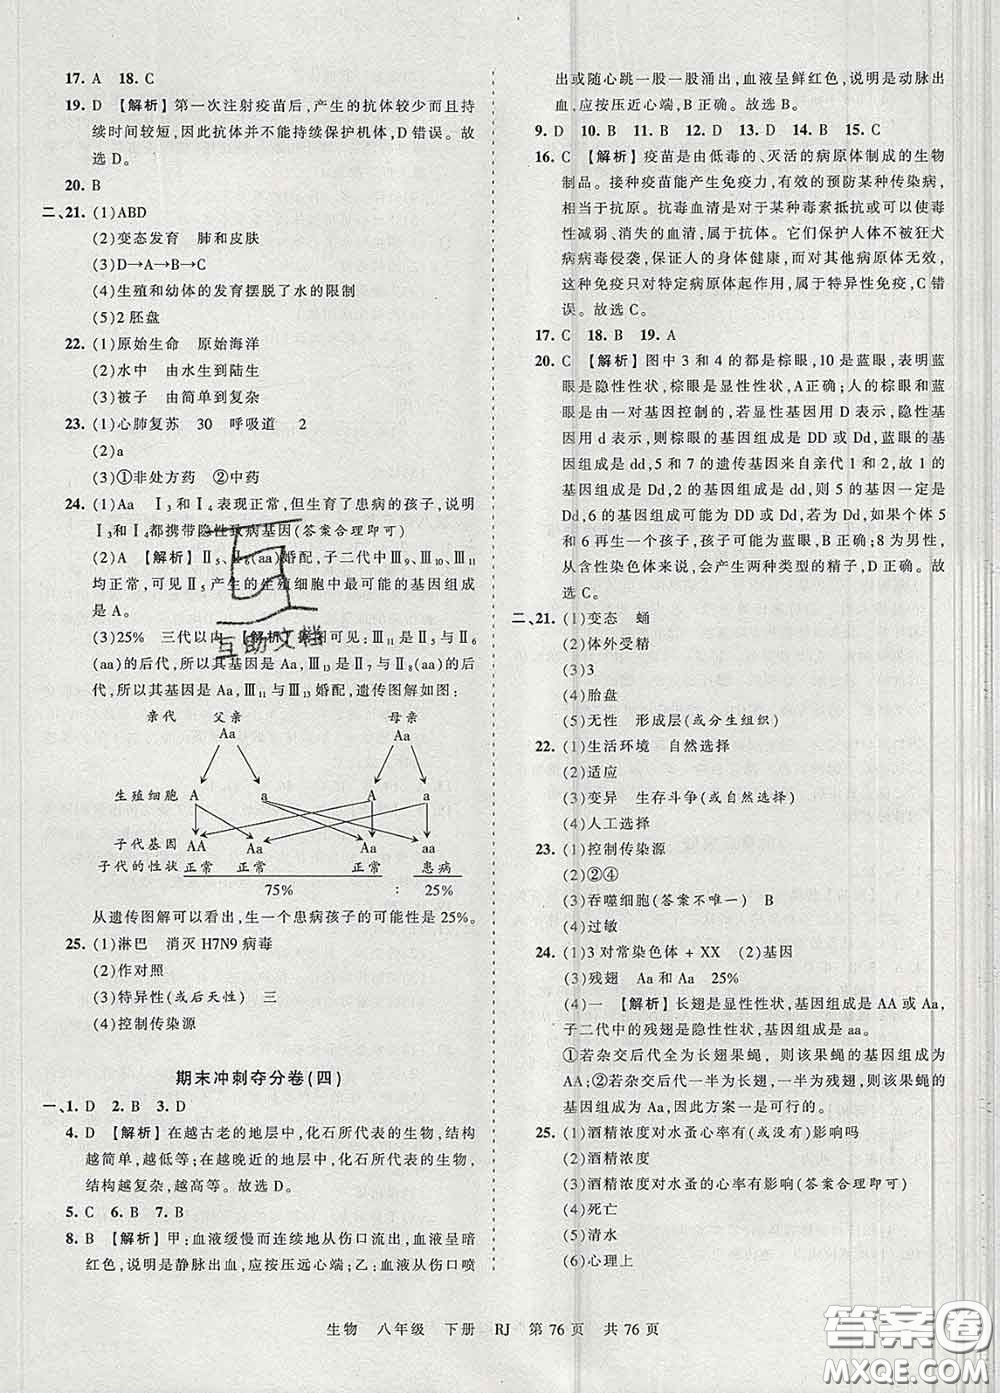 17. A 18. C
19. D 【解析】第一次注射疫苗后,产生的抗体较少而且持
续时间较短,因此抗体并不能持续保护机体,D错误。故
选D。
20. B
二、21. (1)ABD
(2)变态发育 肺和皮肤
(3)D→A→B→C
(4)生殖和幼体的发育摆脱了水的限制
(5)2 胚盘
22. (1)原始生命 原始海洋
(2)水中 由水生到陆生
(3)被子 由简单到复杂
23. (1)心肺复苏 30 呼吸道 2
(2)a
(3)①非处方药 ②中药
24. (1)Aa Ⅰ3和Ⅰ4表现正常,但生育了患病的孩子,说明
Ⅰ3和Ⅰ4都携带隐性致病基因(答案合理即可)
(2)A 【解析】Ⅱ5、Ⅱ6(aa)婚配,子二代中Ⅲ9、Ⅲ10、Ⅲ11
均正常,可见Ⅱ5产生的生殖细胞中最可能的基因组成
是A。
(3)25% 三代以内 【解析】据图可见:Ⅲ11是Ⅱ5与Ⅱ6
(aa)的后代,所以其基因是Aa,Ⅲ13是Ⅱ7与Ⅱ8(aa)的后
代,所以其基因是Aa,Ⅲ11与Ⅲ13婚配,遗传图解如图:
亲代 父亲 母亲
Aa Aa
生殖细胞 A a A a
子代基因 AA Aa Aa aa
子代的性状 正常 正常 正常 患病
75% : 25%
从遗传图解可以看出,生一个患病孩子的可能性是25%。
25. (1)淋巴 消灭H7N9病毒
(2)作对照
(3)特异性(或后天性) 三
(4)控制传染源
期末冲刺夺分卷(四)
一、1. D 2. B 3. D
4. D 【解析】在越古老的地层中,化石所代表的生物,结构
越简单,越低等;在越晚近的地层中,化石所代表的生物,
结构越复杂,越高等。故选D。
5. C 6. B 7. B
8. B 【解析】甲:血液缓慢而连续地从伤口流出,血液呈暗
红色,说明是静脉出血,应按压远心端;乙:血液从伤口喷
出或随心跳一股一股涌出,血液呈鲜红色,说明是动脉出
血,应按压近心端,B正确。故选B。
9. D 10. B 11. B 12. D 13. D 14. B 15. C
16. C 【解析】疫苗是由低毒的、灭活的病原体制成的生物
制品。接种疫苗能产生免疫力,有效的预防某种传染病,
相当于抗原。抗毒血清是对于某种毒素抵抗或可以使毒
性减弱、消失的血清,属于抗体。它们保护人体不被狂犬
病病毒侵袭,保证人的身体健康,而对其他病原体无效,
这种免疫只对特定病原体起作用,属于特异性免疫,C错
误。故选C。
17. C 18. B 19. A
20. C 【解析】图中3和4的都是棕眼,10是蓝眼,表明蓝
眼是隐性性状,棕眼是显性性状,A正确;人的棕眼和蓝
眼是由一对基因控制的,若显性基因用D表示,隐性基
因用d表示,则棕眼的基因组成是DD或Dd,蓝眼的基
因组成是dd,5和7的遗传基因来自亲代1和2,故1的
基因组成是Dd,2的基因组成是dd,则5的基因组成是
Dd,6的基因组成可能为DD或Dd、Dd或Dd,因此如果5
和6再生一个孩子,该孩子可能是棕眼,B正确;8为男性,
从含性染色体来说,会产生两种类型的精子,C错误。故
选C。
二、21. (1)变态 蛹
(2)体外受精
(3)3
(4)胎盘
(5)无性 形成层(或分生组织)
22. (1)生活环境 自然选择
(2)适应
(3)变异 生存斗争(或自然选择)
(4)人工选择
23. (1)控制传染源
(2)②④
(3)吞噬细胞(答案不唯一) B
(4)过敏
24. (1)3对常染色体+XX (2)基因
(3)残翅 Aa和Aa 25%
(4)一 【解析】长翅是显性性状,基因组成是AA或Aa,
子二代中的残翅是隐性性状,基因组成是aa。
①若杂交后代全为长翅果蝇,则该果蝇的基因组成为
AA;②若杂交后代一半为长翅,一半为残翅,则该果蝇的
基因组成为Aa,因此方案一是可行的。
25. (1)酒精浓度对水蚤心率有(或没有)影响吗
(2)酒精浓度
(3)酒精浓度对水蚤的心率有影响(答案合理即可)
(4)死亡
(5)清水
(6)心理上
生物 八年级 下册 RJ 第76页 共76页
互助文档
答案圈
MXQE.COM